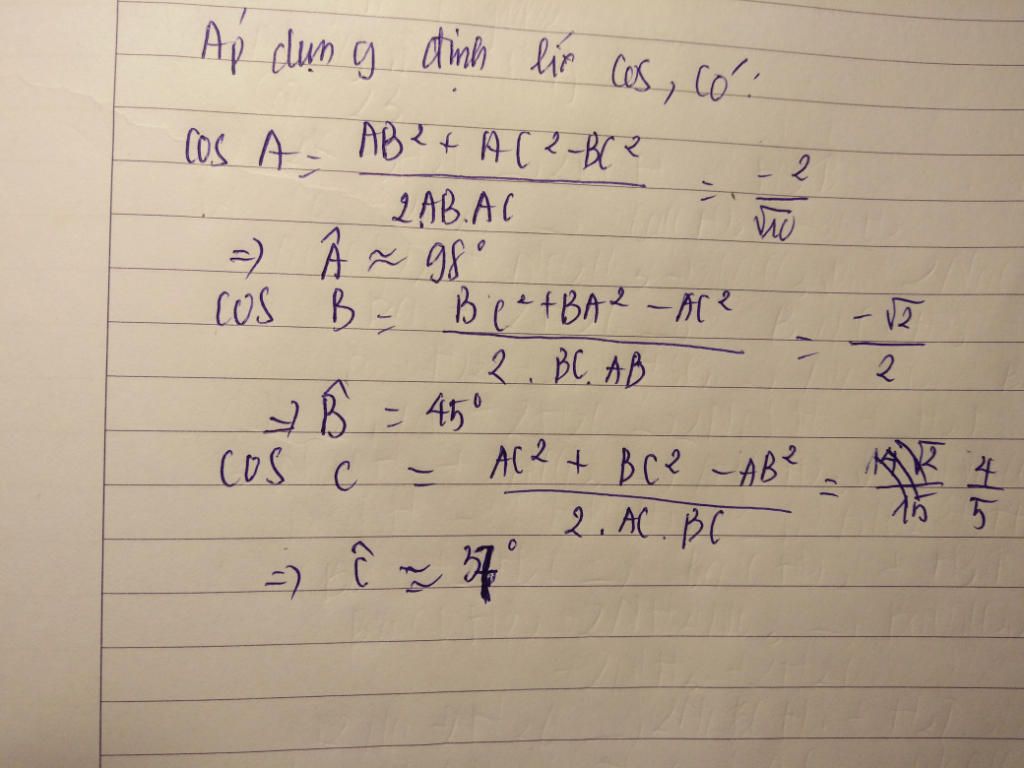 Áp dụng định lí cos, có:
cos A = AB² + AC² - BC² / 2AB.AC = -2/√10
=> Â ≈ 98°
cos B = BC² + BA² - AC² / 2.BC.AB = -√2/2
=> B̂ = 45°
cos C = AC² + BC² - AB² / 2.AC.BC = 4/5
=> Ĉ ≈ 37°